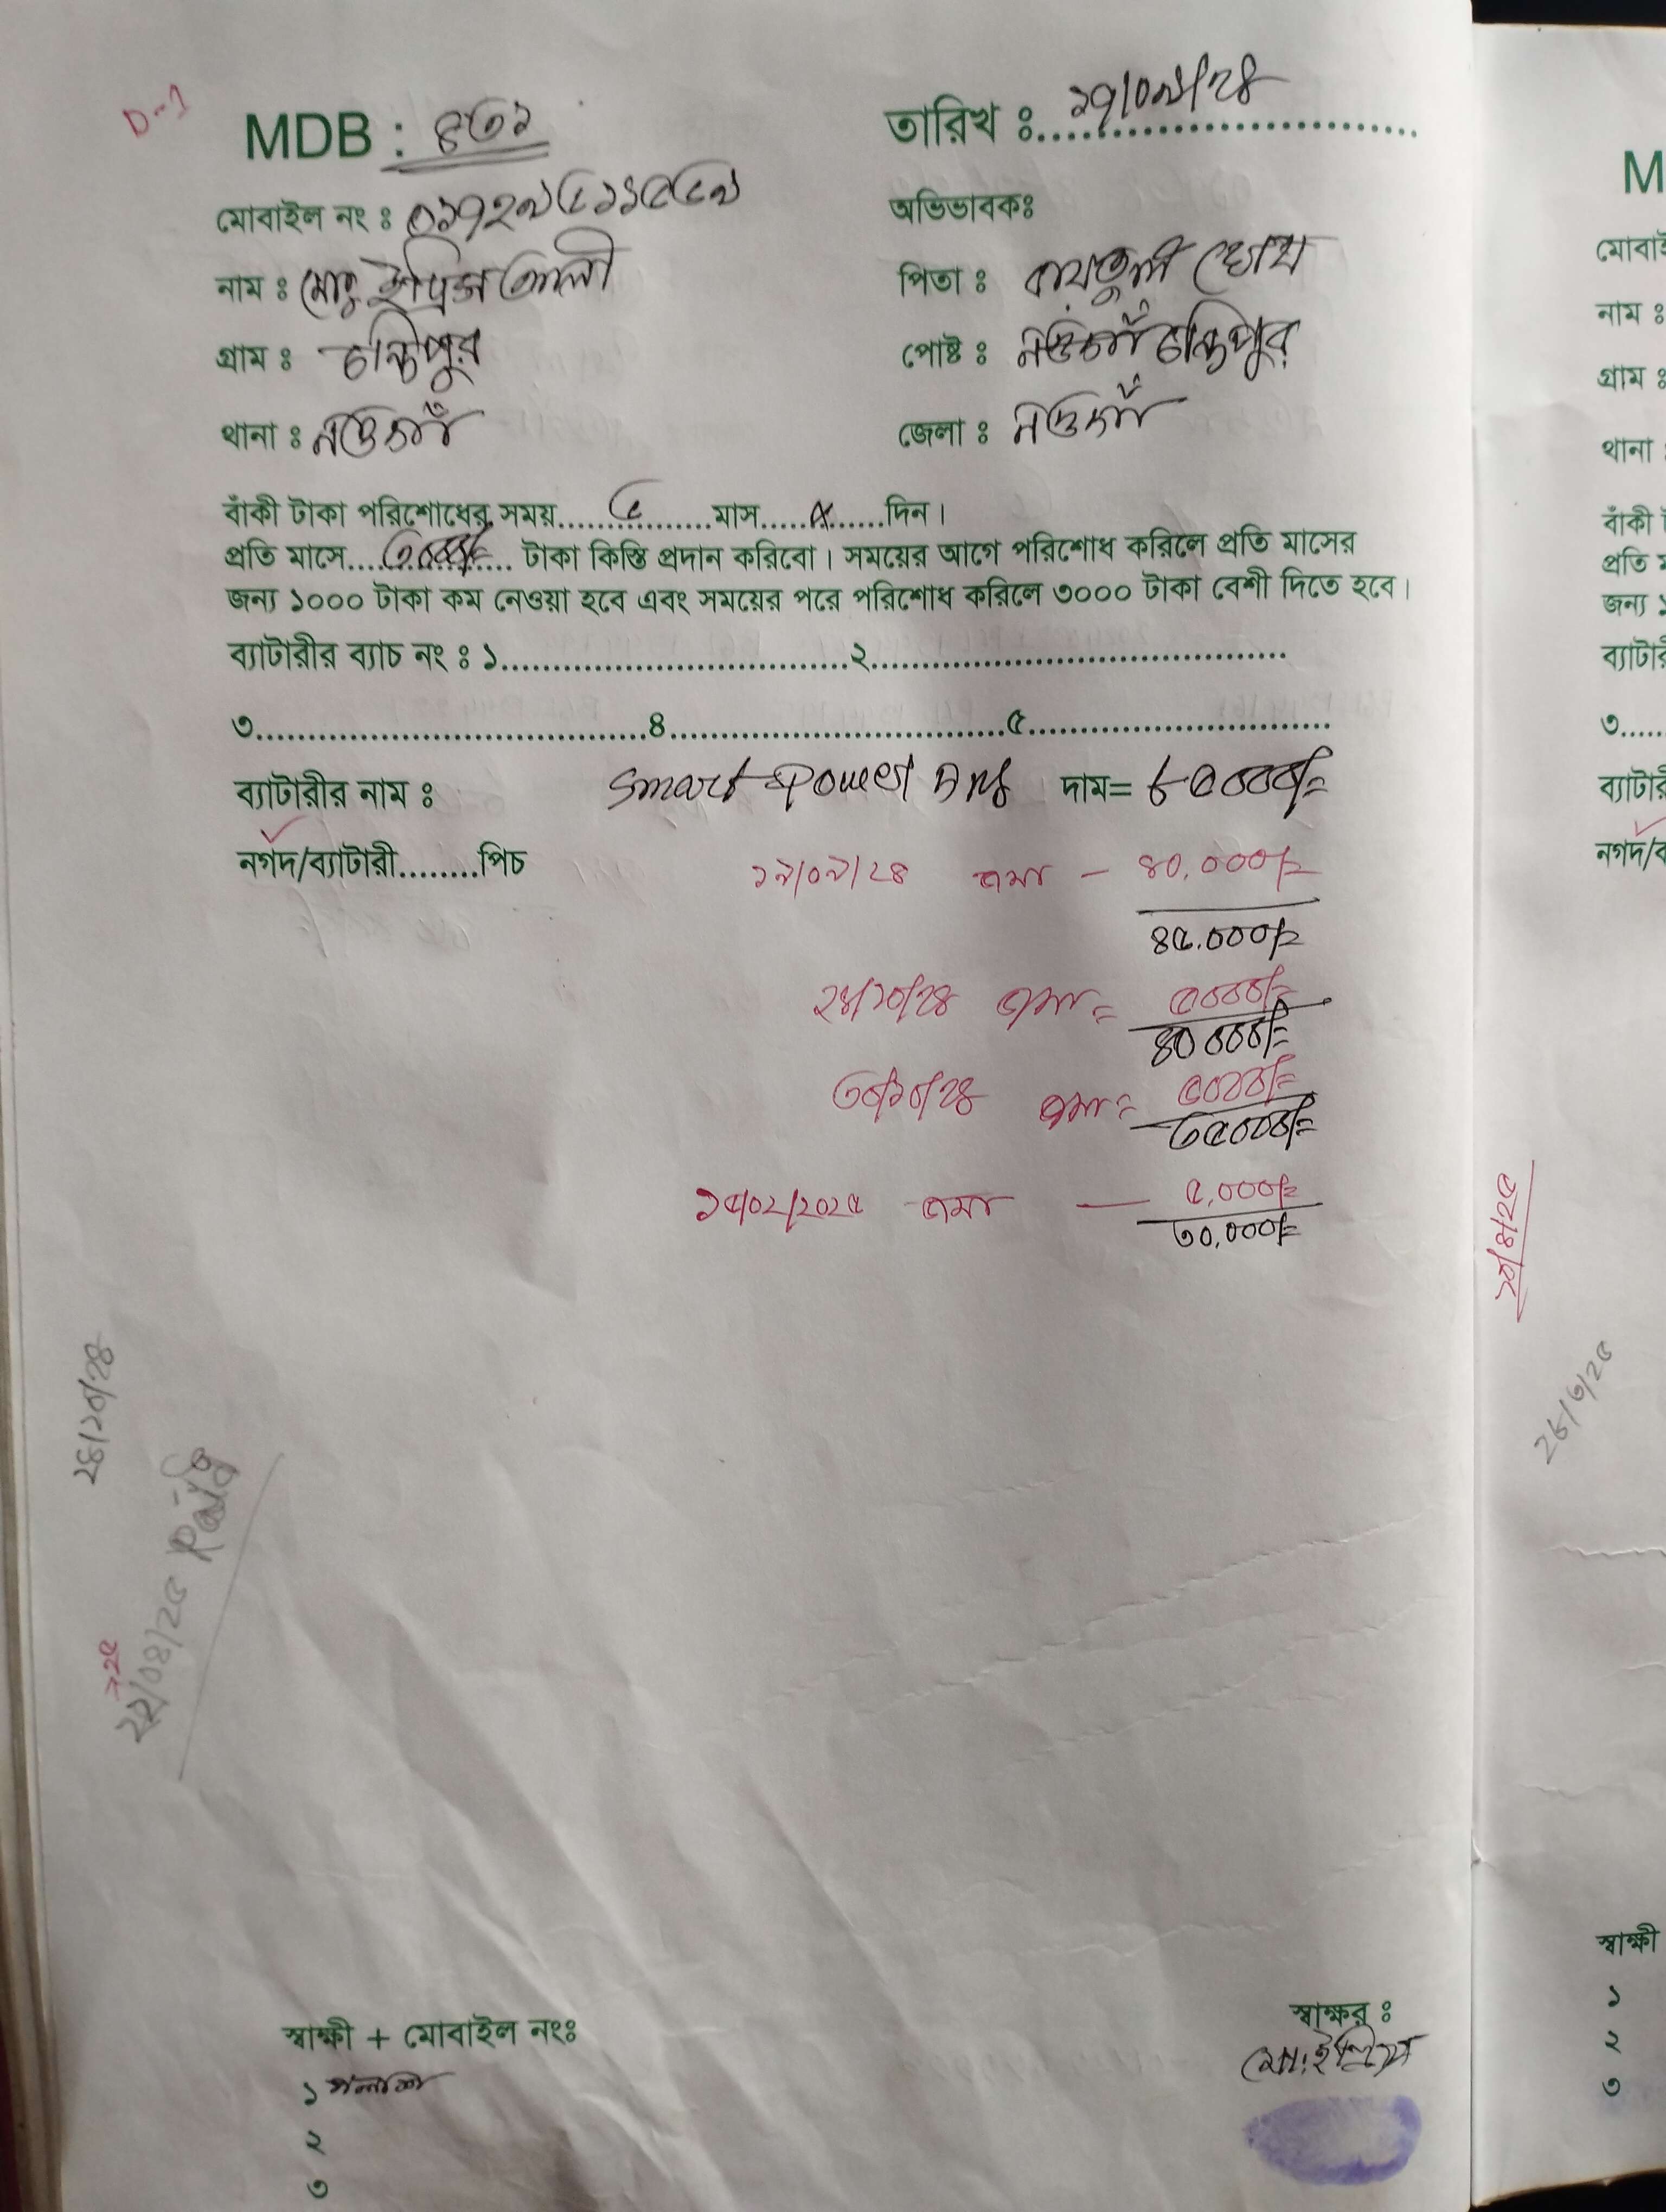 D-1
MDB : ৪৩১
তারিখ ঃ ১৭/০৯/২৪
মোবাইল নং ঃ ০১৭২৯৫১১৫৫৯
অভিভাবকঃ
নাম ঃ মোঃ ইদ্রিস আলী
পিতা ঃ
গ্রাম ঃ চন্ডিপুর
পোষ্ট ঃ নওগাঁ চন্ডিপুর
থানা ঃ নওগাঁ
জেলা ঃ নওগাঁ
বাঁকী টাকা পরিশোধের সময়.......৫.......মাস.....x.......দিন।
প্রতি মাসে....৩০০০/=.... টাকা কিস্তি প্রদান করিবো। সময়ের আগে পরিশোধ করিলে প্রতি মাসের
জন্য ১০০০ টাকা কম নেওয়া হবে এবং সময়ের পরে পরিশোধ করিলে ৩০০০ টাকা বেশী দিতে হবে।
ব্যাটারীর ব্যাচ নং ঃ ১..................................২..........................................
৩......................................৪..................................৫..............................
ব্যাটারীর নাম ঃ Smart Power দাম= ৮৫০০০/=
নগদ/ব্যাটারী........পিচ
১৭/০৯/২৪ জমা - ৪০,০০০/=
৪৫,০০০/=
২৪/১০/২৪ জমা = ৫০০০/=
৪০০০০/=
৩০/১০/২৪ জমা = ৫০০০/=
৩৫০০০/=
১৫/০২/২০২৫ জমা — ৫,০০০/=
৩০,০০০/=
২৬/১০/২৪
২২/০৪/২৫
স্বাক্ষী + মোবাইল নংঃ
১ পলাশ
২
৩
স্বাক্ষর ঃ
মোঃ ইদ্রিস
M
মোবাই
নাম ঃ
গ্রাম ঃ
থানা
বাঁকী
প্রতি
জন্য
ব্যাটার
৩.....
ব্যাটার
নগদ/ব
২০/৪/২৫
২৬/৩/২৫
স্বাক্ষী
১
২
৩